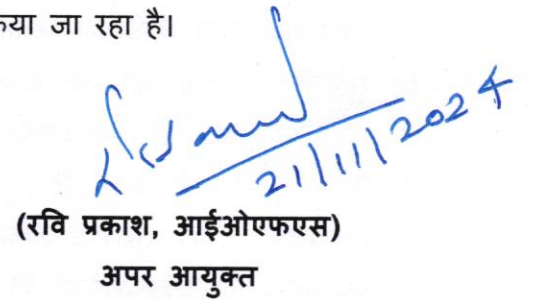 या जा रहा है।
21/11/2024
(रवि प्रकाश, आईओएफएस)
अपर आयुक्त